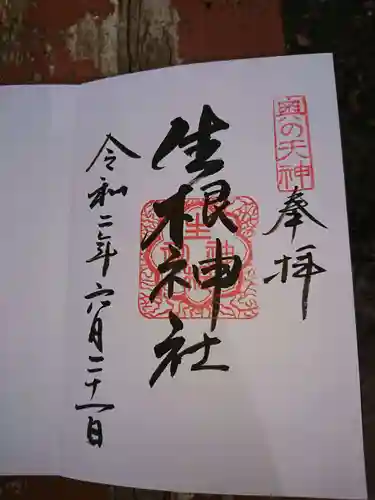 奥の天神
奉拝
生根神社
令和二年六月二十一日